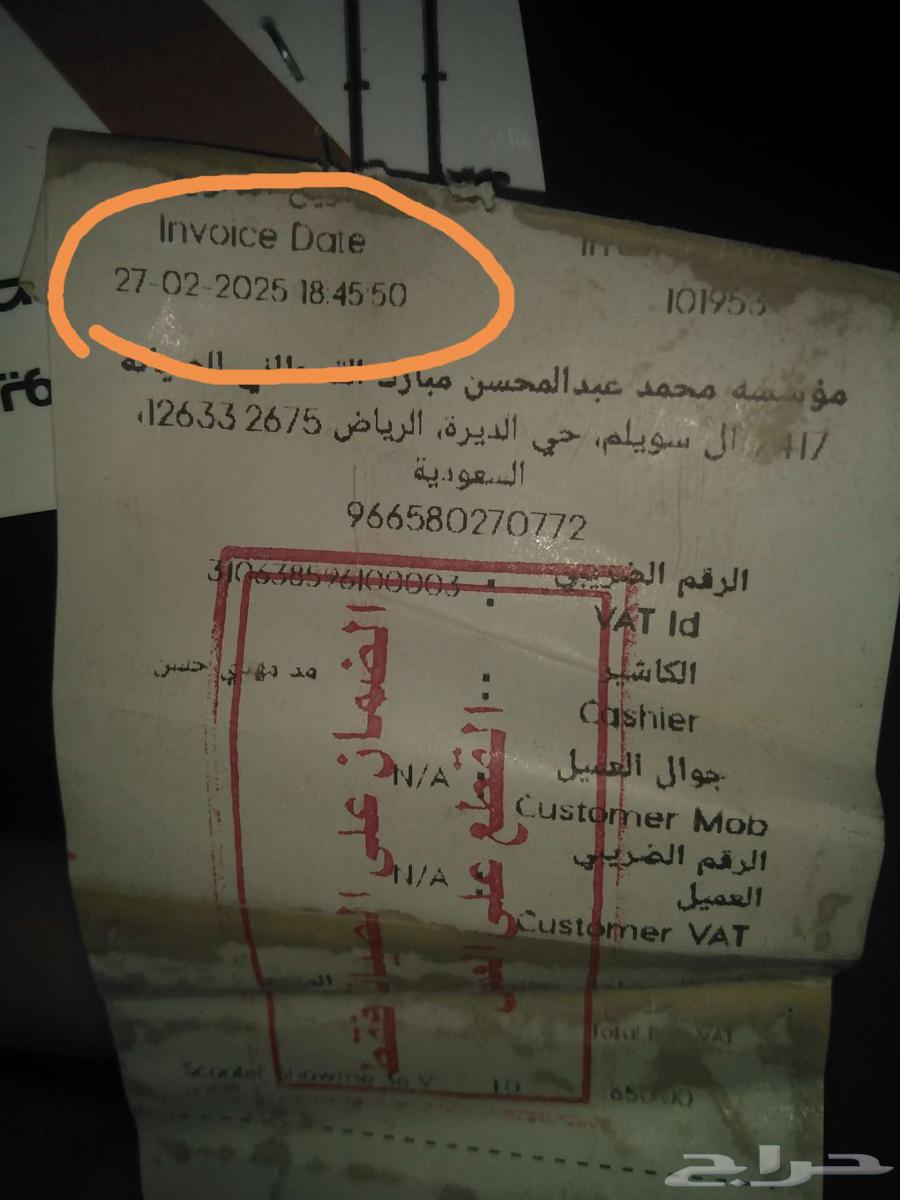 Invoice Date
27-02-2025 18:45:50
101953
مؤسسه محمد عبدالمحسن مبارك
417 ال سويلم، حي الديرة، الرياض 2675 12633،
السعودية
966580270772
الرقم الضريبي : 310638596100003
VAT Id
الكاشير : حسن
Cashier
جوال العميل : N/A
Customer Mob
الرقم الضريبي N/A
العميل
Customer VAT
الضمان على
القطع على
VAT
Scooter 1.0 650.00
حراج